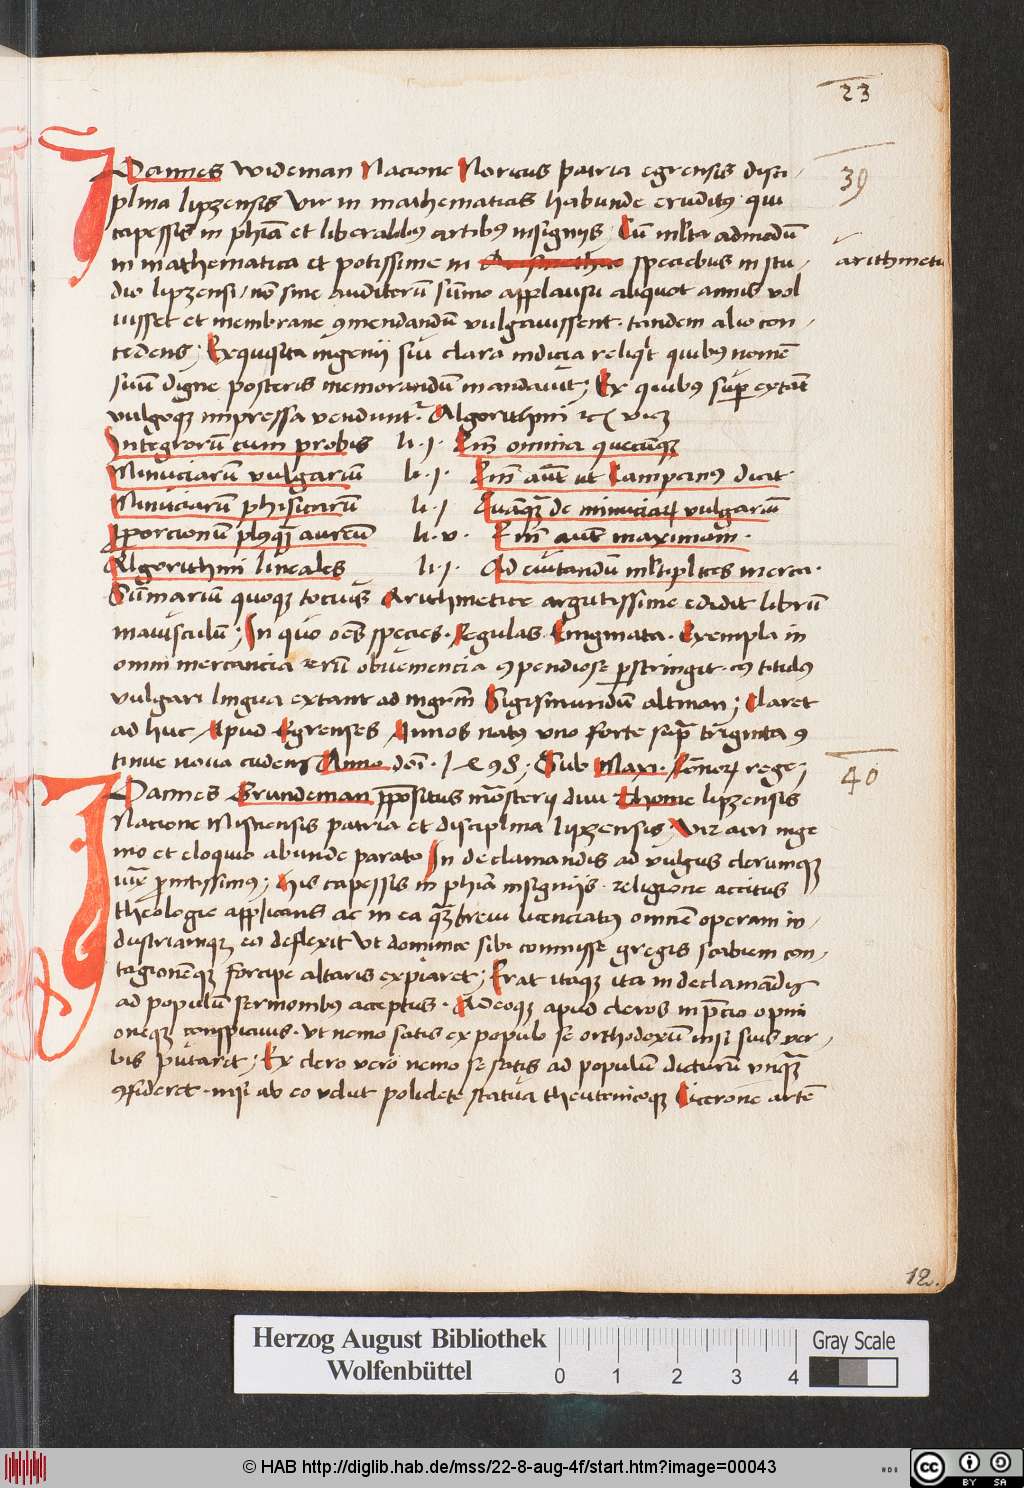 23
39
IOannes wideman Nacione Noricus patria egrensis disci-
plina lipzensis Vir in mathematicis habunde eruditꝰ qui
capessis in phiā et liberalibꝰ artibꝰ insignijs Cū mlta admodū
in mathematica et potissime in Arismethice speciebus in stu-
arithmetic
dio lipzensi non sine auditorū sūmo applausu aliquot annis vol
uisset et membrane ꝯmendandū vulgauissent. tandem alio con-
tedens; Exquisita ingenij sui clara indicia reliqt quibꝰ nomē
suū digne posteris memorandum mandauit; Ex quibꝰ suꝑ extāt
vulgoqꝫ impressa vendunt. Algorithmi
Integrorū cum probis li. j. Cum omnia quecūqꝫ
Minuciarū vulgariū li. j. Cum aut ut Campanꝰ dicit.
Minuciarū phisicarū li. j Quāqꝫ de minuciaꝝ vulgariū
Proporcionū plusqꝫ aureū li. v. Cum aut maximam.
Algorithmi lineales li. j. Ad euitandū mltiplices merca.
Sūmariū quoqꝫ tociꝰ Arithmetice argutissime edidit librū
maiusculū; In quo oēs species. Regulas. Enigmata. Exempla in
omni mercancia rerū ꝯpendiose perstringit.
vulgari lingua extant ad mgrm Sigismundū altman; Claret
ad huc Apud Egrenses Annos natꝰ uno forte supra triginta ꝯ
tinue noua cudens Anno doi. 1498; Sub Maxi. Romoꝝ rege;
40
IOannes Grundeman ppositus mōsterij diui Thome lipzensis
Nacione Misnensis patria et disciplina lipzensis Vir acri inge
nio et eloquio abunde parato In declamandis ad vulgus clerumqꝫ
his capessis in phia insignijs. religione accitus
theologie applicans ac in ea qꝫ breui licenciatꝰ omnem operam in-
dustriamqꝫ eo deflexit Vt dominice sibi commisse gregis scabiem con-
tagionēqꝫ forcipe altaris expiaret; Erat itaqꝫ ita in declamādis
ad populū sermonibꝰ acceptus. Adeoqꝫ apud cleros in precio opini
oneqꝫ conspicuus. Vt nemo satis ex populo se orthodoxū nisi suis ver-
bis putaret; Ex clero vero nemo se satis ad populū dicturū unqꝫ
ꝯfideret. nisi ab eo velut polidete statua theutonicoqꝫ Cicerone artē
12.
Herzog August Bibliothek
Wolfenbüttel
0 1 2 3 4
Gray Scale
© HAB http://diglib.hab.de/mss/22-8-aug-4f/start.htm?image=00043
HAB
cc BY SA